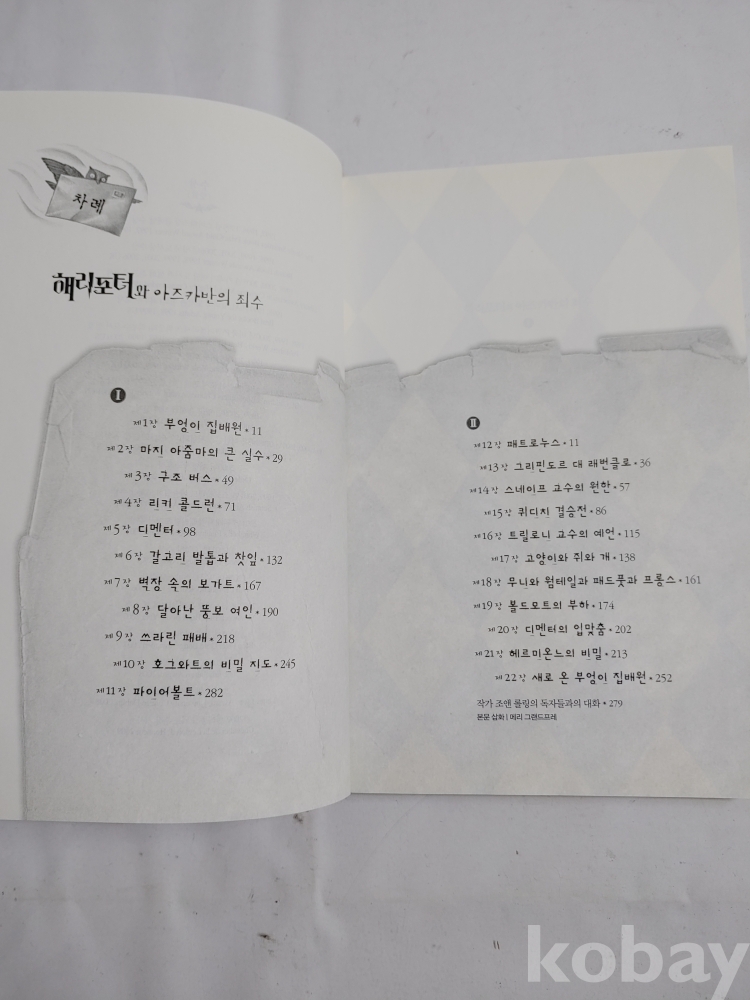 차례
해리포터와 아즈카반의 죄수
I
제1장 부엉이 집배원 • 11
제2장 마진 아줌마의 큰 실수 • 29
제3장 구조 버스 • 49
제4장 리키 콜드런 • 71
제5장 디멘터 • 98
제6장 갈고리 발톱과 찻잎 • 132
제7장 벽장 속의 보가트 • 167
제8장 달아난 뚱보 여인 • 190
제9장 쓰라린 패배 • 218
제10장 호그와트의 비밀 지도 • 245
제11장 파이어볼트 • 282
II
제12장 패트로누스 • 11
제13장 그리핀도르 대 래번클로 • 36
제14장 스네이프 교수의 원한 • 57
제15장 퀴디치 결승전 • 86
제16장 트릴로니 교수의 예언 • 115
제17장 고양이와 쥐와 개 • 138
제18장 무니와 웜테일과 패드풋과 프롱스 • 161
제19장 볼드모트의 부하 • 174
제20장 디멘터의 입맞춤 • 202
제21장 헤르미온느의 비밀 • 213
제22장 새로 온 부엉이 집배원 • 252
작가 조앤 롤링의 독자들과의 대화 • 279
본문 삽화 | 메리 그랜드프레
kobay